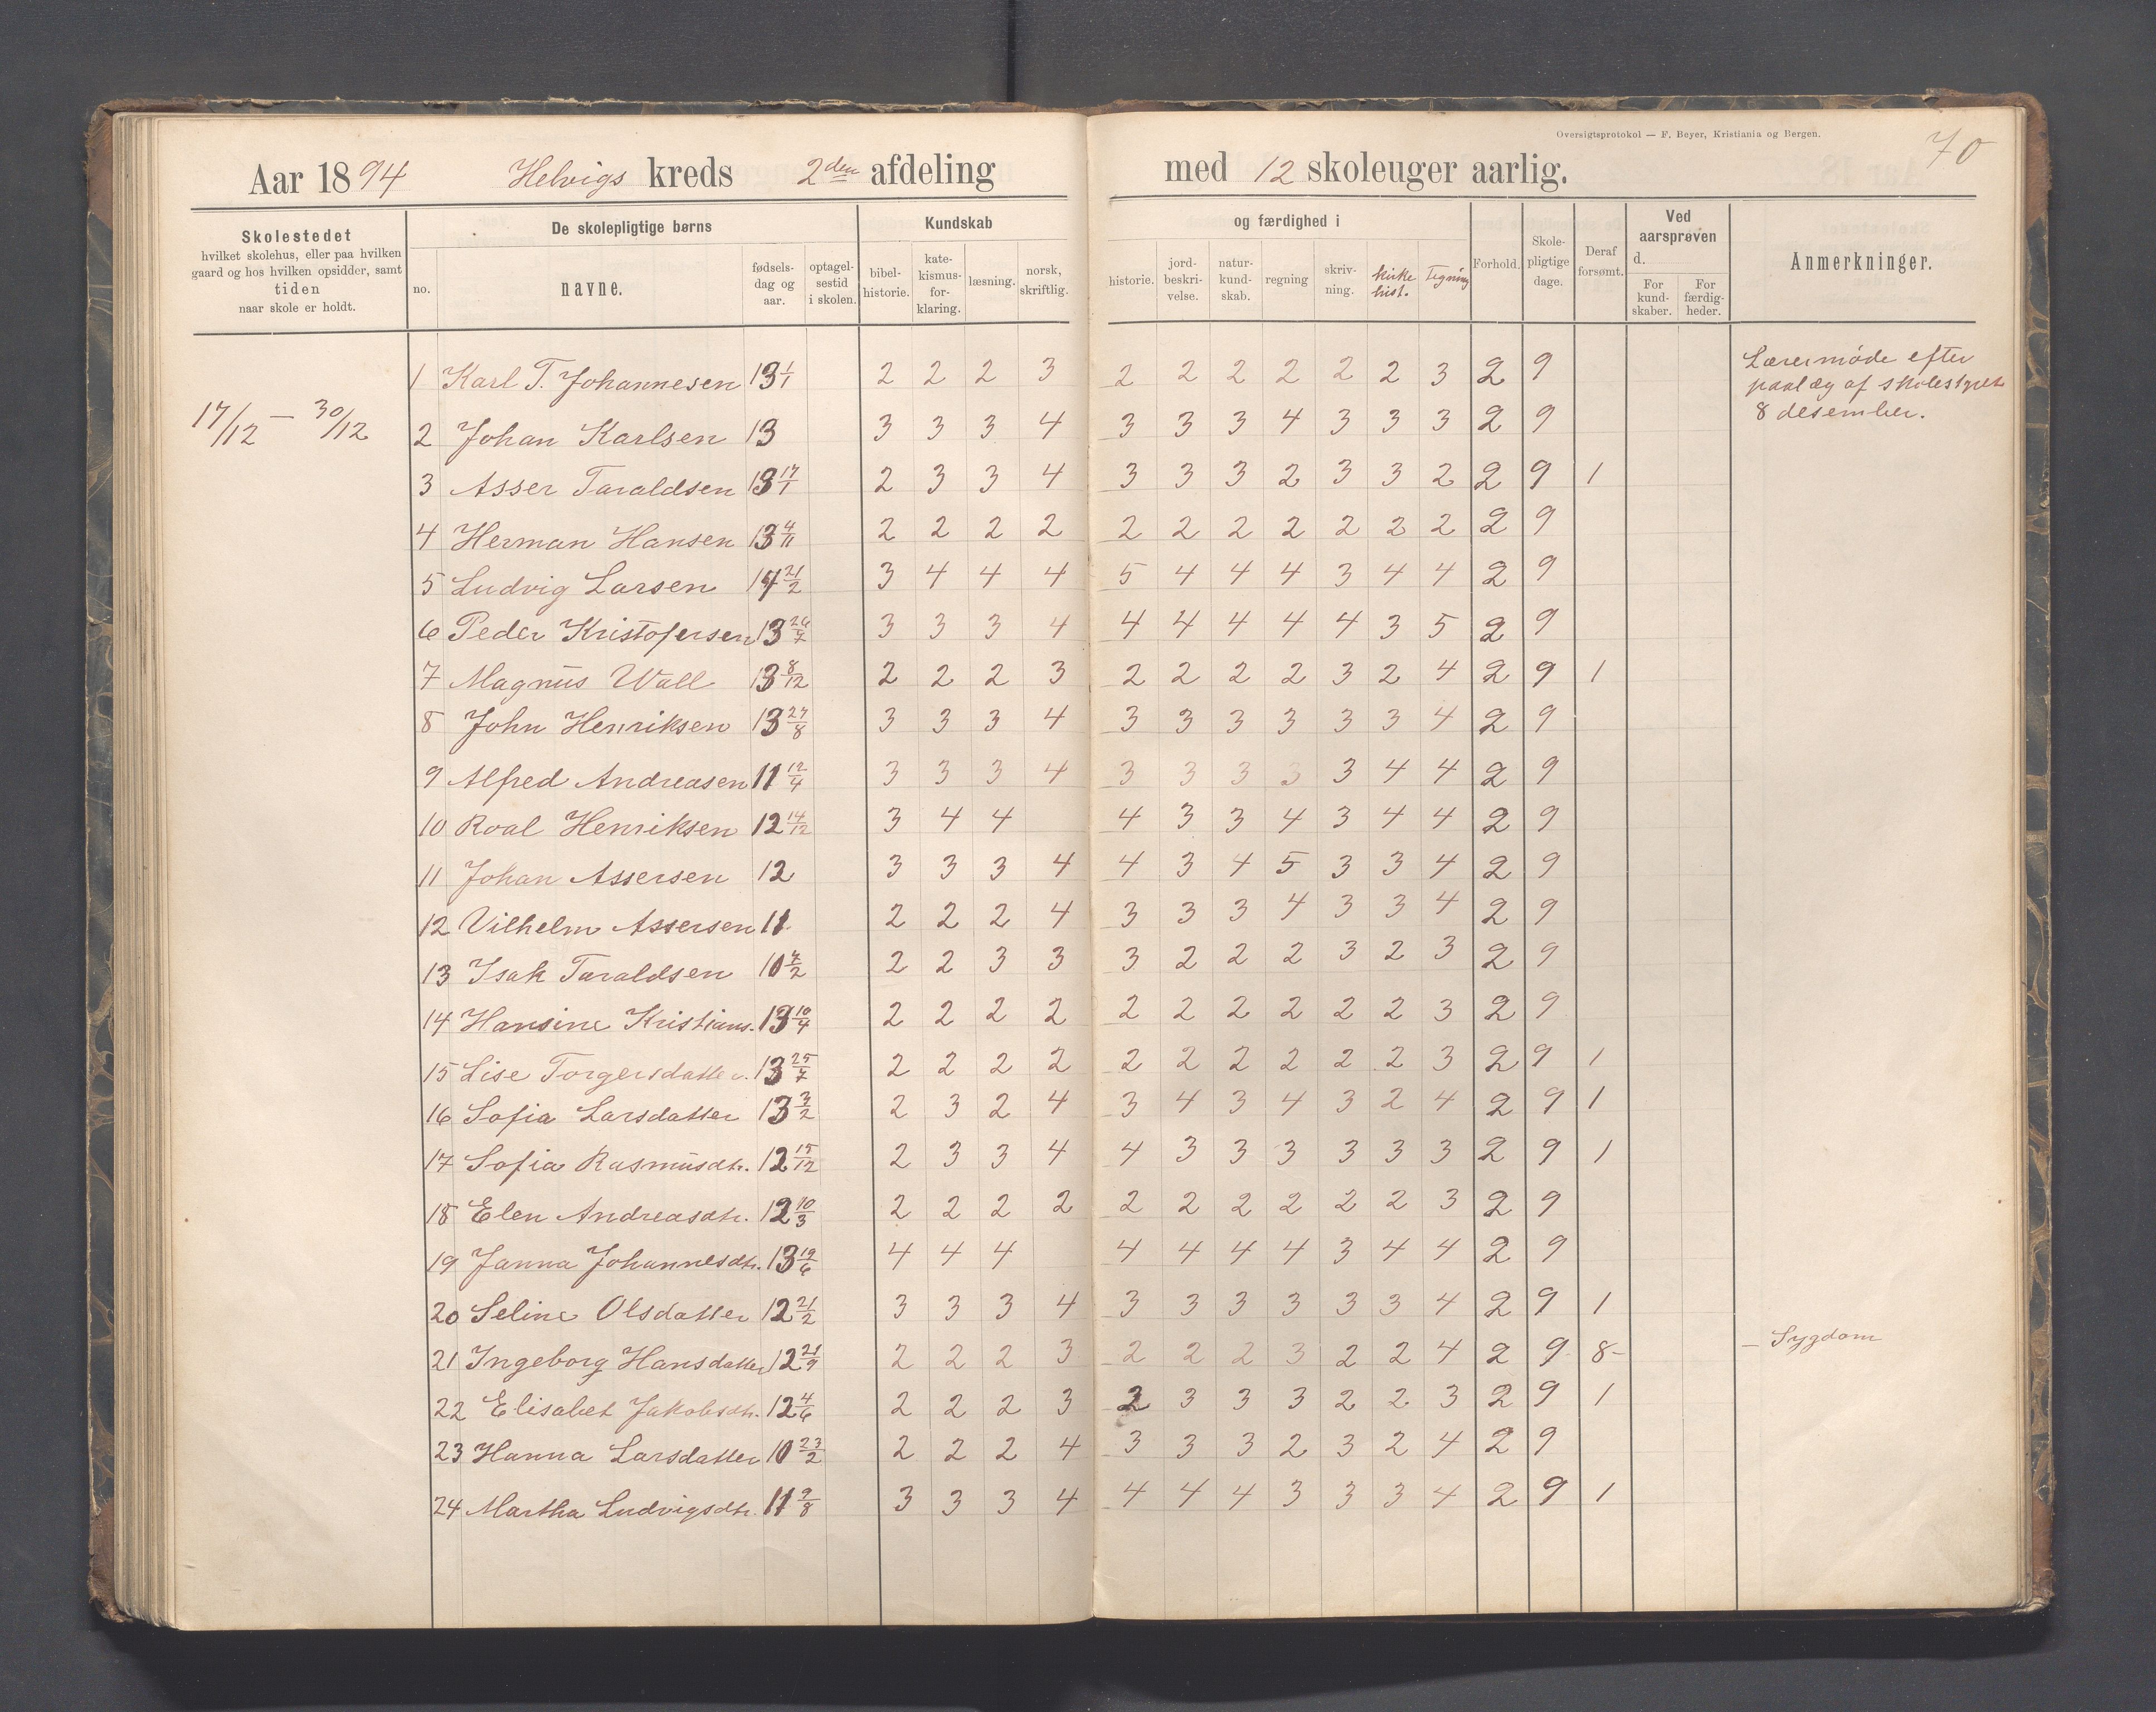 Oversigtsprotokol — F. Beyer, Kristiania og Bergen.
70
Aar 1894 Helvigs kreds 2den afdeling med 12 skoleuger aarlig.
Skolestedet
hvilket skolehus, eller paa hvilken
gaard og hos hvilken opsidder, samt
tiden
naar skole er holdt.
De skolepligtige børns
no.
navne.
fødsels-
dag og
aar.
optagel-
sestid
i skolen.
Kundskab
bibel-
historie.
kate-
kismus-
for-
klaring.
læsning.
norsk,
skriftlig.
og færdighed i
historie.
jord-
beskri-
velse.
natur-
kund-
skab.
regning
skriv-
ning.
kirke
hist.
Tegning
Forhold.
Skole-
pligtige
dage.
Deraf
forsømt.
Ved
aarsprøven
d.
For
kund-
skaber.
For
færdig-
heder.
Anmerkninger.
17/12 — 30/12
1 Karl T. Johannesen 13 1/1 2 2 2 3 2 2 2 2 2 2 3 2 9
Lærermøde efter
paalæg af skolestyret
8 desember.
2 Johan Karlsen 13 3 3 3 4 3 3 3 4 3 3 3 2 9
3 Asser Taraldsen 13 17/1 2 3 3 4 3 3 3 2 3 3 2 2 9 1
4 Herman Hansen 13 4/11 2 2 2 2 2 2 2 2 2 2 2 2 9
5 Ludvig Larsen 14 21/2 3 4 4 4 5 4 4 4 3 4 4 2 9
6 Peder Kristofersen 13 26/7 3 3 3 4 4 4 4 4 4 3 5 2 9
7 Magnus Wall 13 8/12 2 2 2 3 2 2 2 2 3 2 4 2 9 1
8 John Henriksen 13 27/8 3 3 3 4 3 3 3 3 3 3 4 2 9
9 Alfred Andreasen 11 12/4 3 3 3 4 3 3 3 3 3 4 4 2 9
10 Roal Henriksen 12 14/12 3 4 4 4 3 3 4 3 4 4 2 9
11 Johan Assersen 12 3 3 3 4 4 3 4 5 3 3 4 2 9
12 Vilhelm Assersen 11 2 2 2 4 3 3 3 4 3 3 4 2 9
13 Isak Taraldsen 10 4/2 2 2 3 3 3 2 2 2 3 2 3 2 9
14 Hansine Kristians. 13 10/4 2 2 2 2 2 2 2 2 2 2 3 2 9
15 Lise Torgersdatter. 13 25/7 2 2 2 2 2 2 2 2 2 2 3 2 9 1
16 Sofia Larsdatter 13 3/2 2 3 2 4 3 4 3 4 3 2 4 2 9 1
17 Sofia Rasmusdtr. 12 15/12 2 3 3 4 4 3 3 3 3 3 3 2 9 1
18 Elen Andreasdtr. 12 10/3 2 2 2 2 2 2 2 2 2 2 3 2 9
19 Janna Johannesdtr. 13 19/6 4 4 4 4 4 4 4 3 4 4 2 9
20 Seline Olsdatter 12 21/2 3 3 3 4 3 3 3 3 3 3 4 2 9 1
21 Ingeborg Hansdatter 12 21/9 2 2 2 3 2 2 2 3 2 2 4 2 9 8 — Sygdom
22 Elisabet Jakobsdtr. 12 4/6 2 2 2 3 2 3 3 3 2 2 3 2 9 1
23 Hanna Larsdatter 10 23/2 2 2 2 4 3 3 3 2 3 2 4 2 9
24 Martha Ludvigsdtr. 11 9/8 3 3 3 4 4 4 4 3 3 3 4 2 9 1